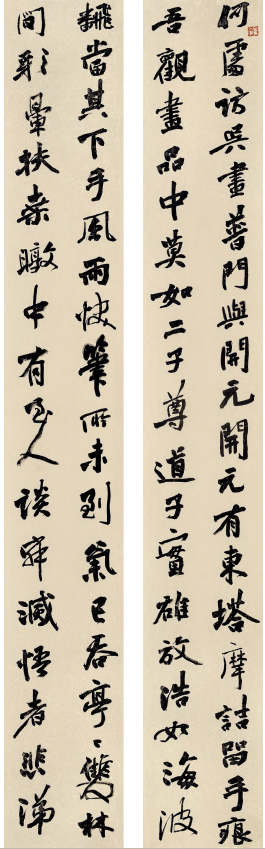 何處訪吳畫普門與開元開元有東塔摩詰留手痕
吾觀畫品中莫如二子尊道子實雄放浩如海波
飜當其下手風雨快筆所未到氣已吞亭〻雙林
間彩暈扶桑暾中有至人談寂滅悟者悲涕